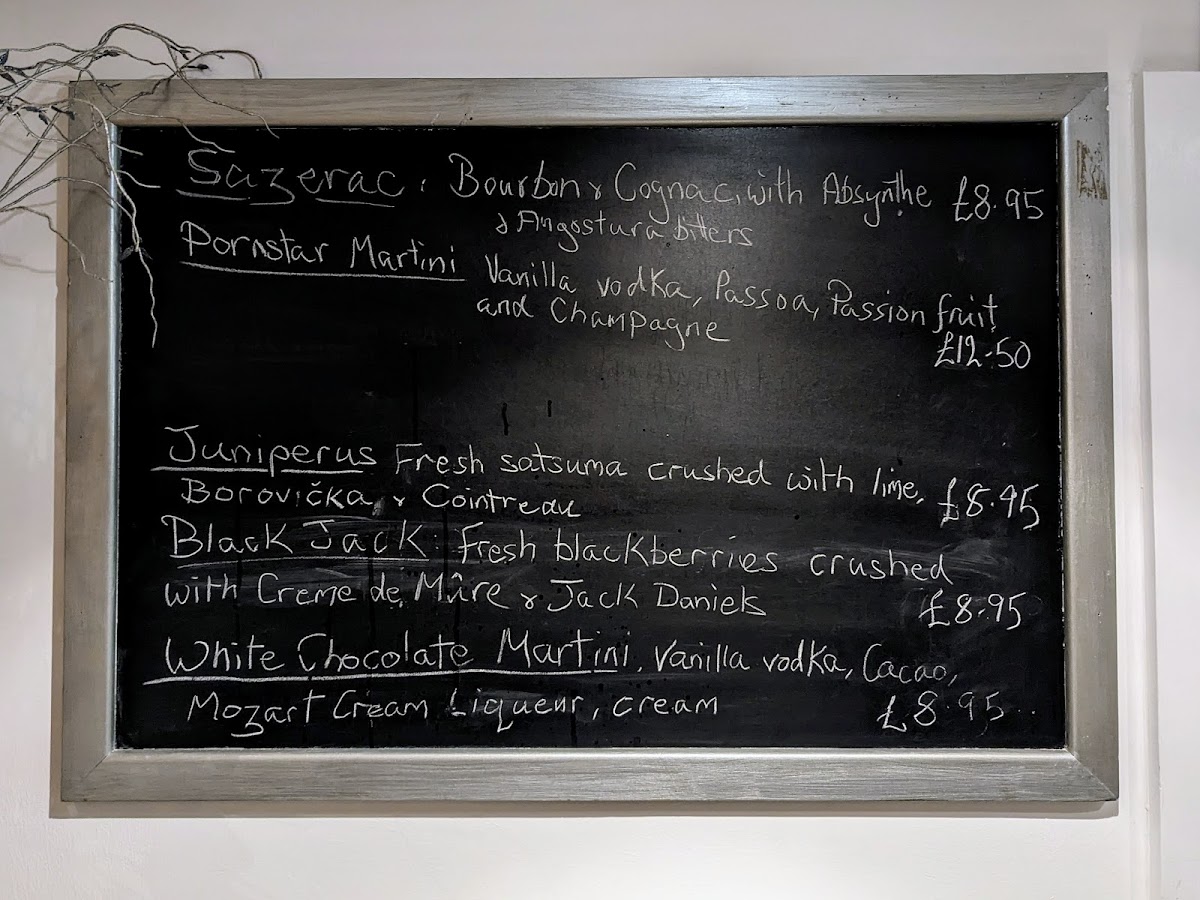 Sazerac. Bourbon & Cognac, with Absynthe £8.95
& Angostura bitters
Pornstar Martini Vanilla vodka, Passoa, Passion fruit
and Champagne
£12.50
Juniperus Fresh satsuma crushed with lime, £8.95
Borovička, & Cointreau
Black Jack. Fresh blackberries crushed
with Creme de Mûre & Jack Daniels £8.95
White Chocolate Martini, Vanilla vodka, Cacao,
Mozart Cream Liqueur, cream £8.95